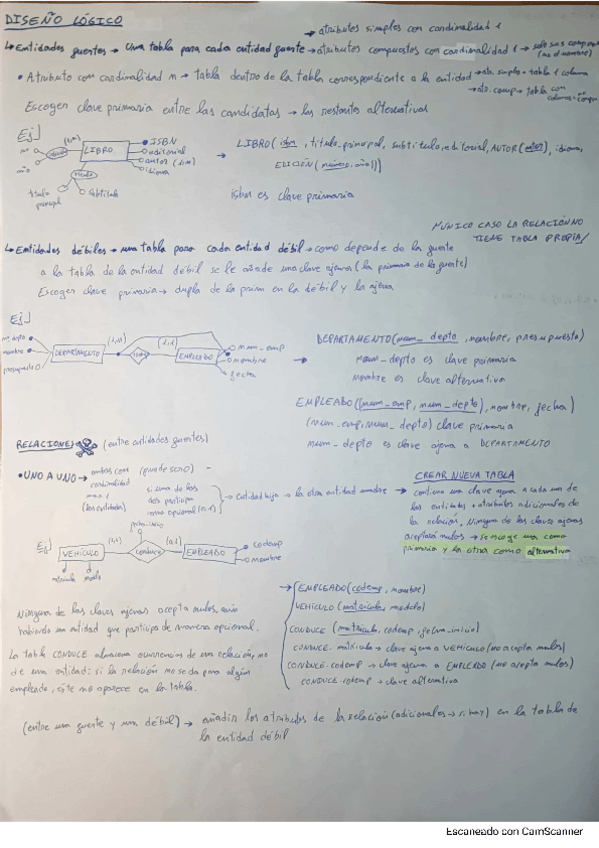 DISEÑO LÓGICO
→ atributos simples con cardinalidad 1
↳ Entidades fuertes → Una tabla para cada entidad fuerte → atributos compuestos con cardinalidad 1 → solo sus
• Atributo con cardinalidad n → tabla dentro de la tabla correspondiente a la entidad → tabla 1 columna
tabla con
Escoger clave primaria entre las candidatas → las restantes alternativas
Ej
LIBRO
(1,n)
ISBN
editorial
autor (1,n)
idioma
año
título
título principal
subtítulo
→ LIBRO(isbn, título_principal, subtítulo, editorial, AUTOR(autor), idioma,
EDICIÓN(número, año))
isbn es clave primaria
ÚNICO CASO LA RELACIÓN NO
TIENE TABLA PROPIA
↳ Entidades débiles → una tabla para cada entidad débil → como depende de la fuerte
a la tabla de la entidad débil se le añade una clave ajena (la primaria de la fuerte)
Escoger clave primaria → dupla de la prim en la débil y la ajena
Ej
nombre
presupuesto
DEPARTAMENTO
(1,n)
(1,1)
EMPLEADO
num_emp
nombre
fecha
→ DEPARTAMENTO(num_depto, nombre, presupuesto)
num_depto es clave primaria
nombre es clave alternativa
EMPLEADO((num_emp, num_depto), nombre, fecha)
(num_emp, num_depto) clave primaria
num_depto es clave ajena a DEPARTAMENTO
RELACIONES (entre entidades fuertes)
• UNO A UNO → ambas con cardinalidad
(las entidades)
si una de las dos participa como opcional (0,1)
→ entidad hijo → la otra entidad madre →
CREAR NUEVA TABLA
contiene una clave ajena a cada una de
las entidades + atributos adicionales de
la relación. Ninguna de las claves ajenas
aceptará nulos → se escoge una como
primaria y la otra como alternativa
Ej
VEHICULO
matricula
modelo
(1,1)
conduce
(0,1)
EMPLEADO
codemp
nombre
→ EMPLEADO(codemp, nombre)
VEHICULO(matricula, modelo)
CONDUCE(matricula, codemp, fecha_inicio)
CONDUCE.matricula → clave ajena a VEHICULO (no acepta nulos)
CONDUCE.codemp → clave ajena a EMPLEADO (no acepta nulos)
CONDUCE.codemp → clave alternativa
Ninguna de las claves ajenas acepta nulos, aún
habiendo una entidad que participa de manera opcional.
La tabla CONDUCE almacena ocurrencias de una relación, no
de una entidad: si la relación no se da para algún
empleado, este no aparece en la tabla.
(entre una fuerte y una débil) → añadir los atributos de la relación (adicionales → si hay) en la tabla de
la entidad débil
Escaneado con CamScanner